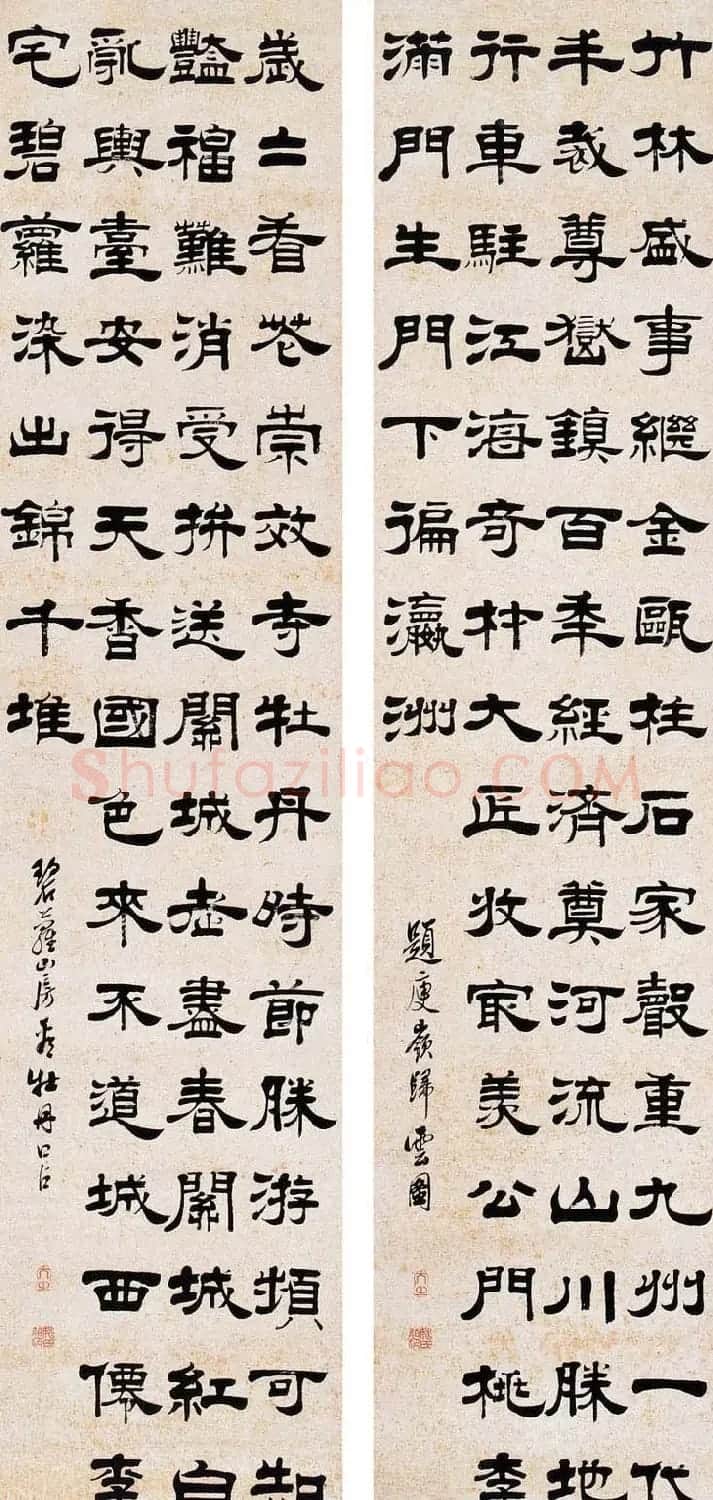 竹林盛事繼金甌柱石家聲重九州一代
丰裁尊嶽鎮百年經濟奠河流山川勝地
行車駐江海奇材大匠收最羨公門桃李
滿門生門下徧瀛洲
題庾嶺歸雲圖
歲二看花崇效寺牡丹時節勝游頻可知
豔福難消受拚送關城老盡春關城紅白
亂輿臺安得天香國色來不道城西僊李
宅碧蘿染出錦千堆
碧蘿山房看牡丹口占
Shufaziliao.COM